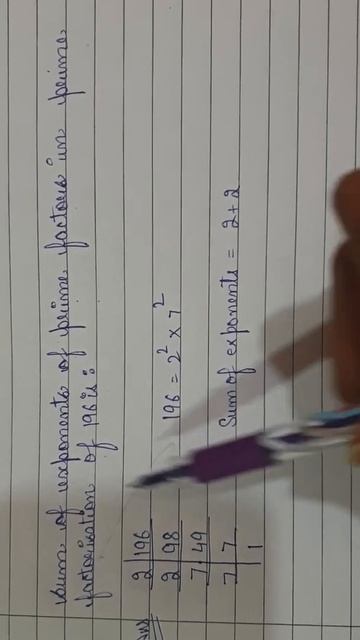 Sum of exponents of prime factors in prime
factorisation of 196 is:
Ans
2 | 196
2 | 98
7 | 49
7 | 7
1
196 = 2² × 7²
Sum of exponents = 2+2